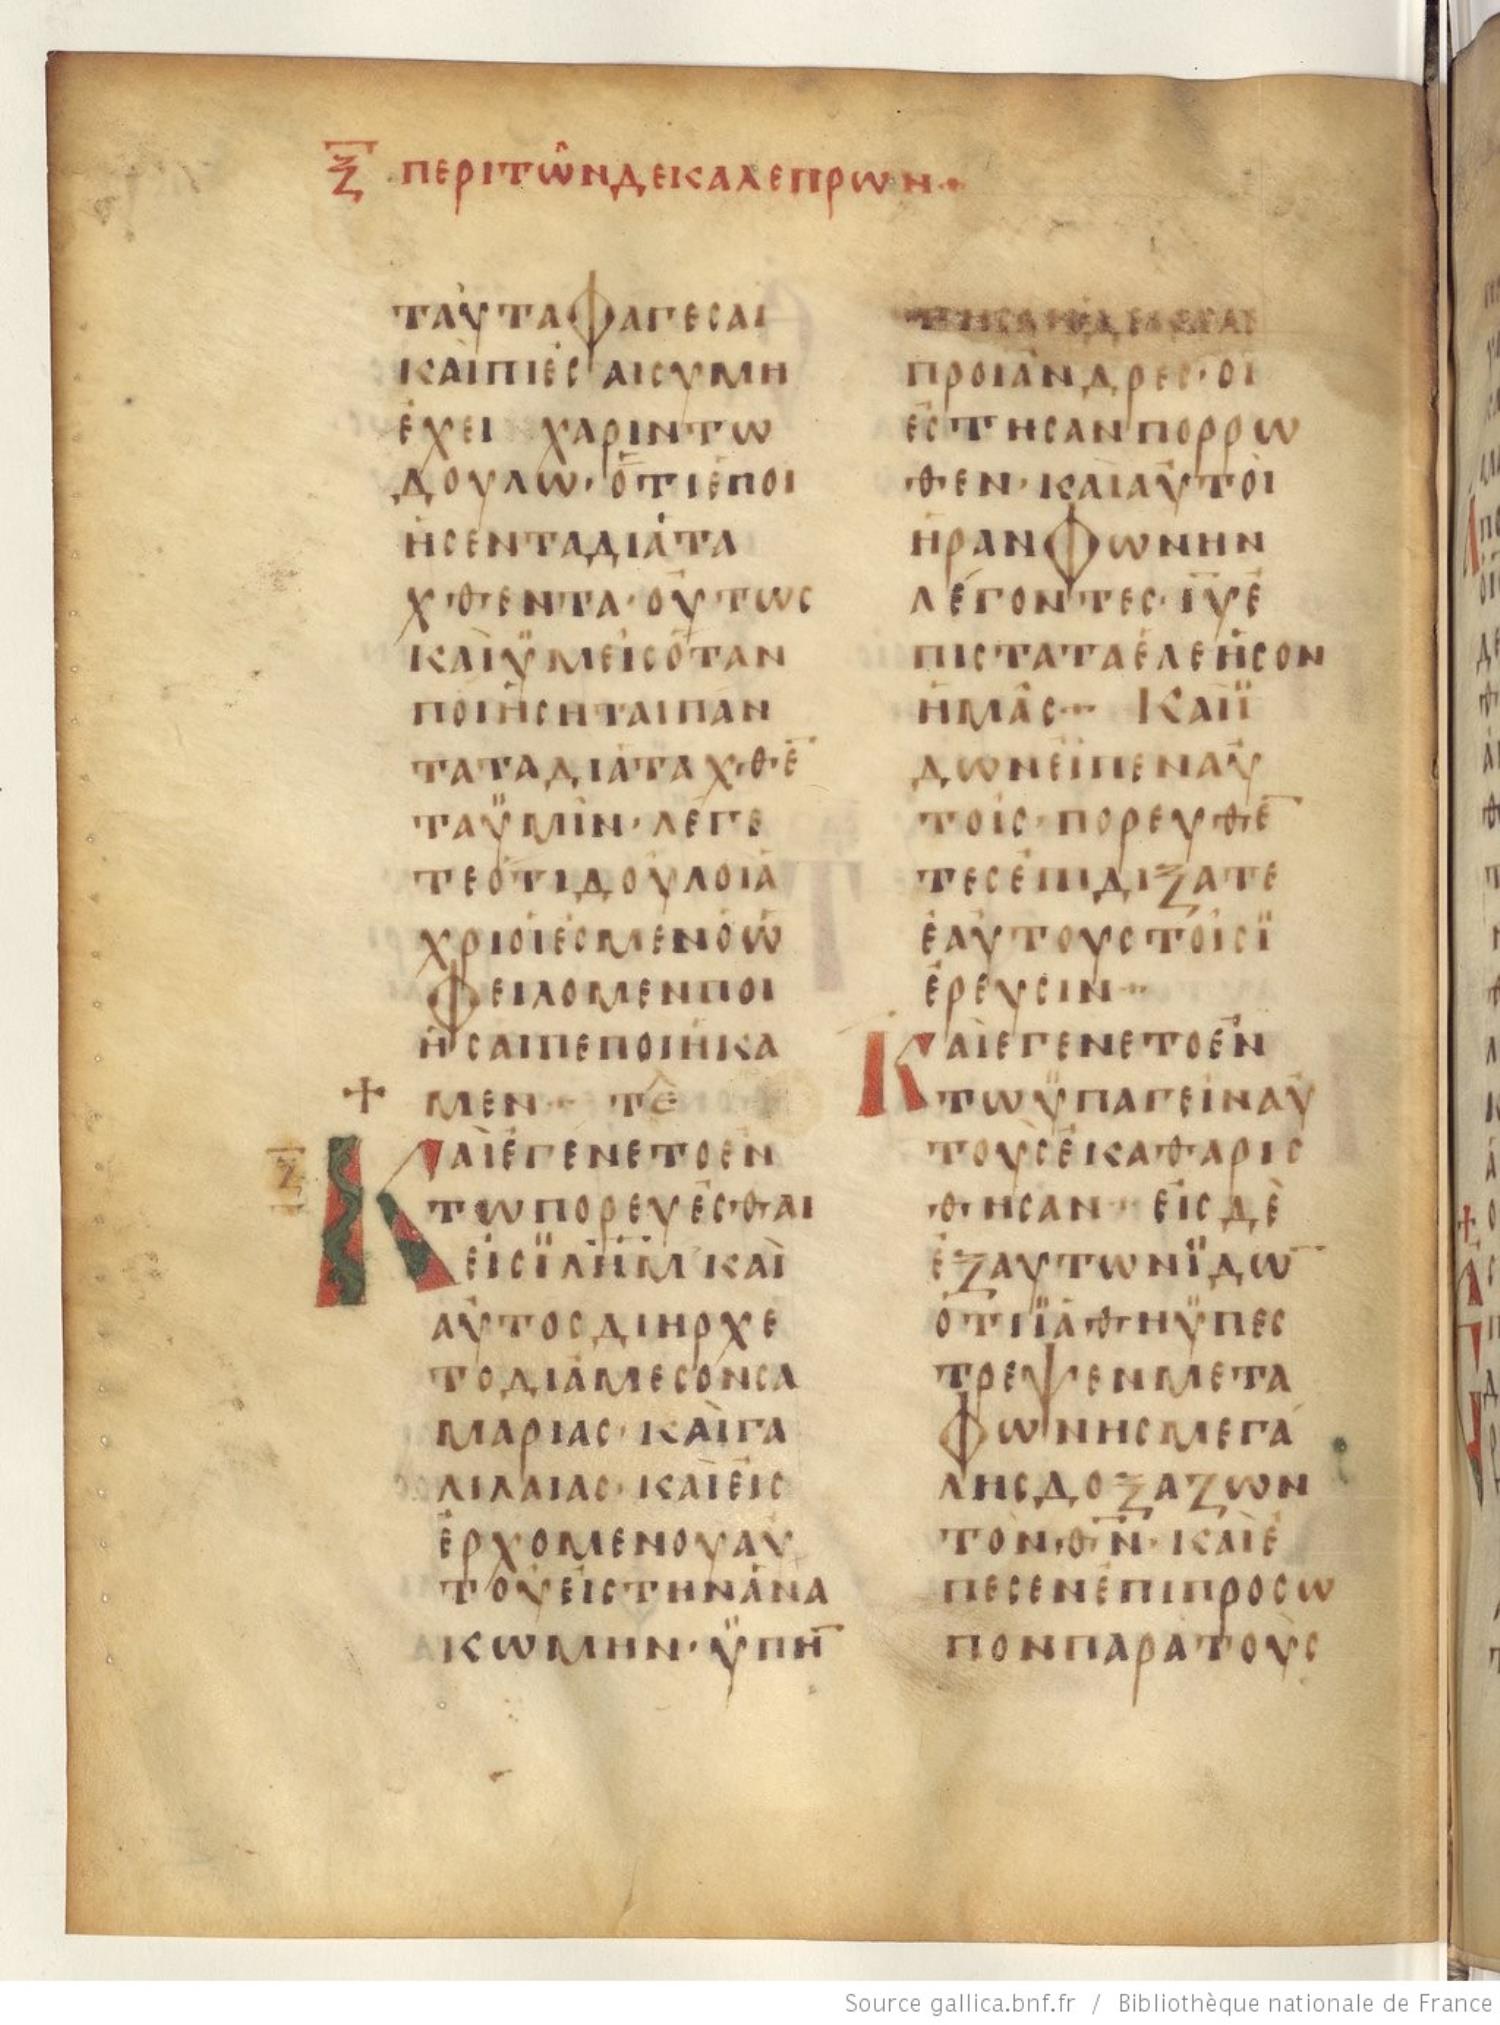 Ξ ΠΕΡΙ ΤΩ͂Ν ΔΕΚΑ ΛΕΠΡΩΝ·
ΤΑΥΤΑ ΦΑΓΕΣΑΙ
ΚΑΙ ΠΙΕΣΑΙ ΣΥ ΜΗ
ΕΧΕΙ ΧΑΡΙΝ ΤΩ
ΔΟΥΛΩ· ΟΤΙ ΕΠΟΙ
ΗΣΕΝ ΤΑ ΔΙΑΤΑ
ΧΘΕΝΤΑ· ΟΥΤΩΣ
ΚΑΙ ΫΜΕΙΣ ΟΤΑΝ
ΠΟΙΗΣΗΤΑΙ ΠΑΝ
ΤΑ ΤΑ ΔΙΑΤΑΧΘΕ̅
ΤΑ ΫΜΙΝ· ΛΕΓΕ
ΤΕ ΟΤΙ ΔΟΥΛΟΙ Α
ΧΡΙΟΙ ΕΣΜΕΝ Ο Ω
ΦΕΙΛΟΜΕΝ ΠΟΙ
ΗΣΑΙ ΠΕΠΟΙΗΚΑ
+ ΜΕΝ·· ΤΕ
Ξ ΚΑΙ ΕΓΕΝΕΤΟ ΕΝ
ΤΩ ΠΟΡΕΥΕΣΘΑΙ
ΕΙΣ Ϊ̅Λ̅Η̅Μ̅ ΚΑΙ
ΑΥΤΟΣ ΔΙΗΡΧΕ
ΤΟ ΔΙΑ ΜΕΣΟΝ ΣΑ
ΜΑΡΙΑΣ· ΚΑΙ ΓΑ
ΛΙΛΑΙΑΣ· ΚΑΙ ΕΙΣ
ΕΡΧΟΜΕΝΟΥ ΑΥ
ΤΟΥ ΕΙΣ ΤΗΝ ΑΝΑ
ΚΩΜΗΝ· ΫΠΗ̅
ΠΡΟΙ ΑΝΔΡΕΣ· ΟΙ
ΕΣΤΗΣΑΝ ΠΟΡΡΩ
ΘΕΝ· ΚΑΙ ΑΥΤΟΙ
ΗΡΑΝ ΦΩΝΗΝ
ΛΕΓΟΝΤΕΣ· Ι̅Υ̅ Ε
ΠΙΣΤΑΤΑ ΕΛΕΗΣΟΝ
ΗΜΑΣ·· ΚΑΙ Ϊ
ΔΩΝ ΕΙΠΕΝ ΑΥ
ΤΟΙΣ· ΠΟΡΕΥΘΕ̅
ΤΕΣ ΕΠΙΔΙΞΑΤΕ
ΕΑΥΤΟΥΣ ΤΟΙΣ Ϊ
ΕΡΕΥΣΙΝ··
ΚΑΙ ΕΓΕΝΕΤΟ ΕΝ
ΤΩ ΫΠΑΓΕΙΝ ΑΥ
ΤΟΥΣ ΕΚΑΘΑΡΙΣ
ΘΗΣΑΝ· ΕΙΣ ΔΕ
ΕΞ ΑΥΤΩΝ ΪΔΩ̅
ΟΤΙ ΪΑΘΗ ΫΠΕΣ
ΤΡΕΨΕΝ ΜΕΤΑ
ΦΩΝΗΣ ΜΕΓΑ
ΛΗΣ ΔΟΞΑΖΩΝ
ΤΟΝ Θ̅Ν̅· ΚΑΙ Ε
ΠΕΣΕΝ ΕΠΙ ΠΡΟΣΩ
ΠΟΝ ΠΑΡΑ ΤΟΥΣ
Source gallica.bnf.fr / Bibliothèque nationale de France